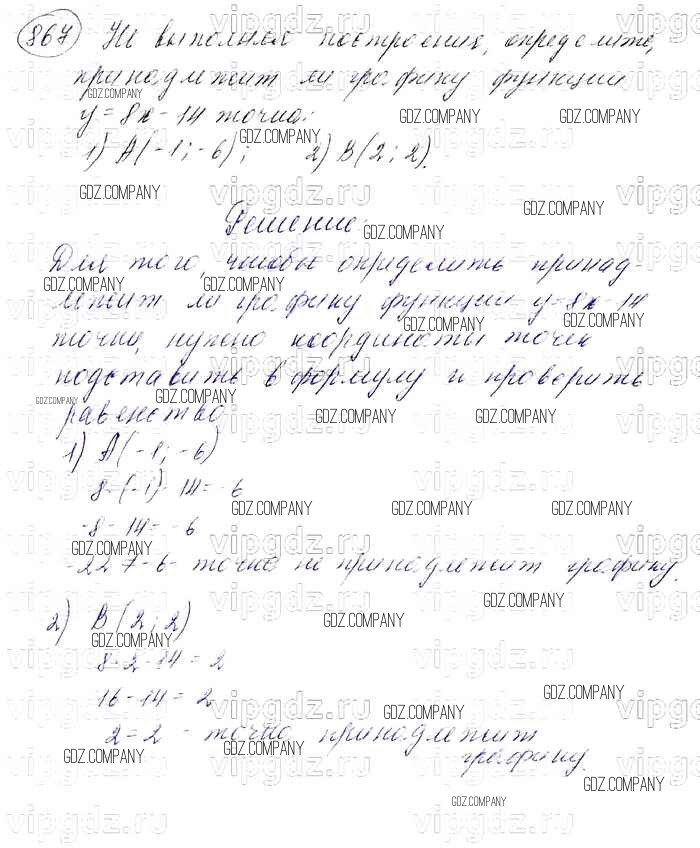 867 Не выполняя построения, определите,
принадлежит ли графику функции
y = 8x - 14 точка:
1) A(-1; -6); 2) B(2; 2).
Решение:
Для того, чтобы определить принад-
лежит ли графику функции y = 8x - 14
точка, нужно координаты точек
подставить в формулу и проверить
равенство
1) A(-1; -6)
8·(-1) - 14 = -6
-8 - 14 = -6
-22 ≠ -6 - точка не принадлежит графику.
2) B(2; 2)
8·2 - 14 = 2
16 - 14 = 2
2 = 2 - точка принадлежит
графику.
GDZ.COMPANY
vipgdz.ru